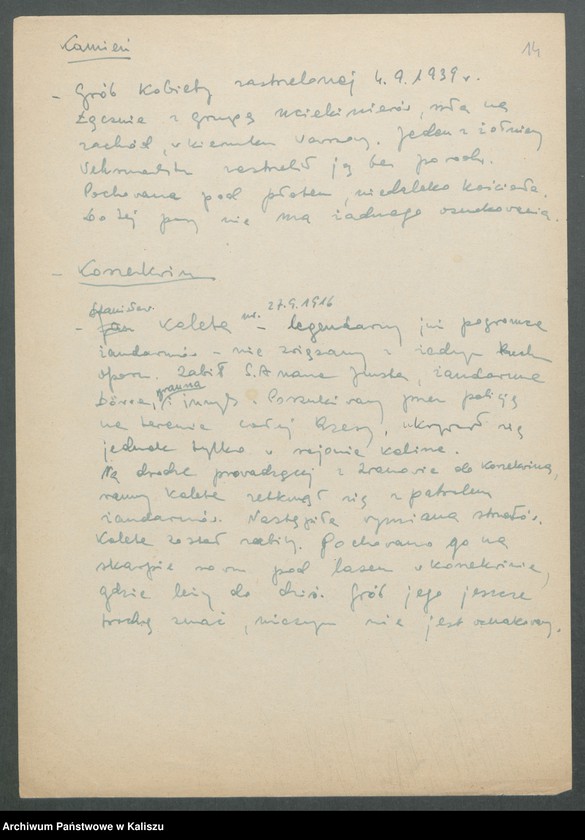 Kamień
14
– Grób kobiety zastrzelonej 4.9.1939 r.
Łącznie z grupą uciekinierów, szła na
zachód, w kierunku Warszawy. Jeden z żołnierzy
Wehrmachtu zastrzelił ją bez powodu.
Pochowana pod płotem, niedaleko kościoła.
Do tej pory nie ma żadnego oznakowania.
– Koszekwin
Stanisław
ur. 27.9.1916
– Kaleta – legendarny już pogromca
żandarmów – nie związany z żadnym ruchem
oporu. Zabił S.A mana, żandarma
i innych. Poszukiwany przez policję
na terenie całej Rzeszy, ukrywał się
jednak tylko w rejonie Kalisza.
Na drodze prowadzącej z do
ranny Kaleta zetknął się z patrolem
żandarmów. Nastąpiła wymiana strzałów.
Kaleta został zabity. Pochowano go na
skarpie rowu pod lasem w
gdzie leży do dziś. Grób jego jeszcze
trochę znać, niczym nie jest oznakowany.
Archiwum Państwowe w Kaliszu